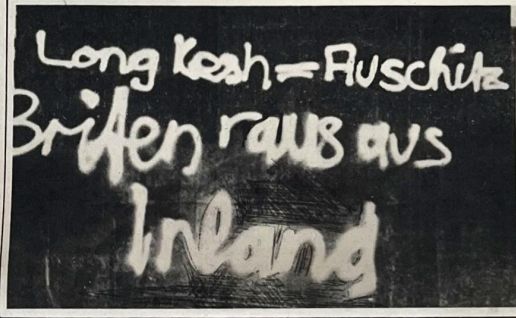 Long Kesh = Auschitz
Briten raus aus
Irland